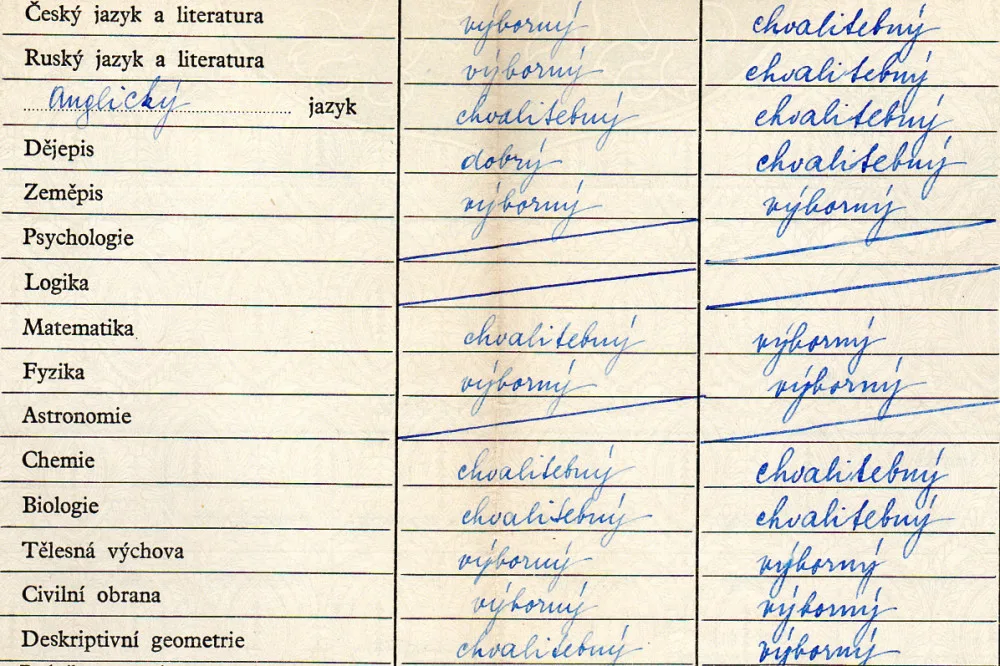 Český jazyk a literatura výborný chvalitebný
Ruský jazyk a literatura výborný chvalitebný
Anglický jazyk chvalitebný chvalitebný
Dějepis dobrý chvalitebný
Zeměpis výborný výborný
Psychologie
Logika
Matematika chvalitebný výborný
Fyzika výborný výborný
Astronomie
Chemie chvalitebný chvalitebný
Biologie chvalitebný chvalitebný
Tělesná výchova výborný výborný
Civilní obrana výborný výborný
Deskriptivní geometrie chvalitebný výborný